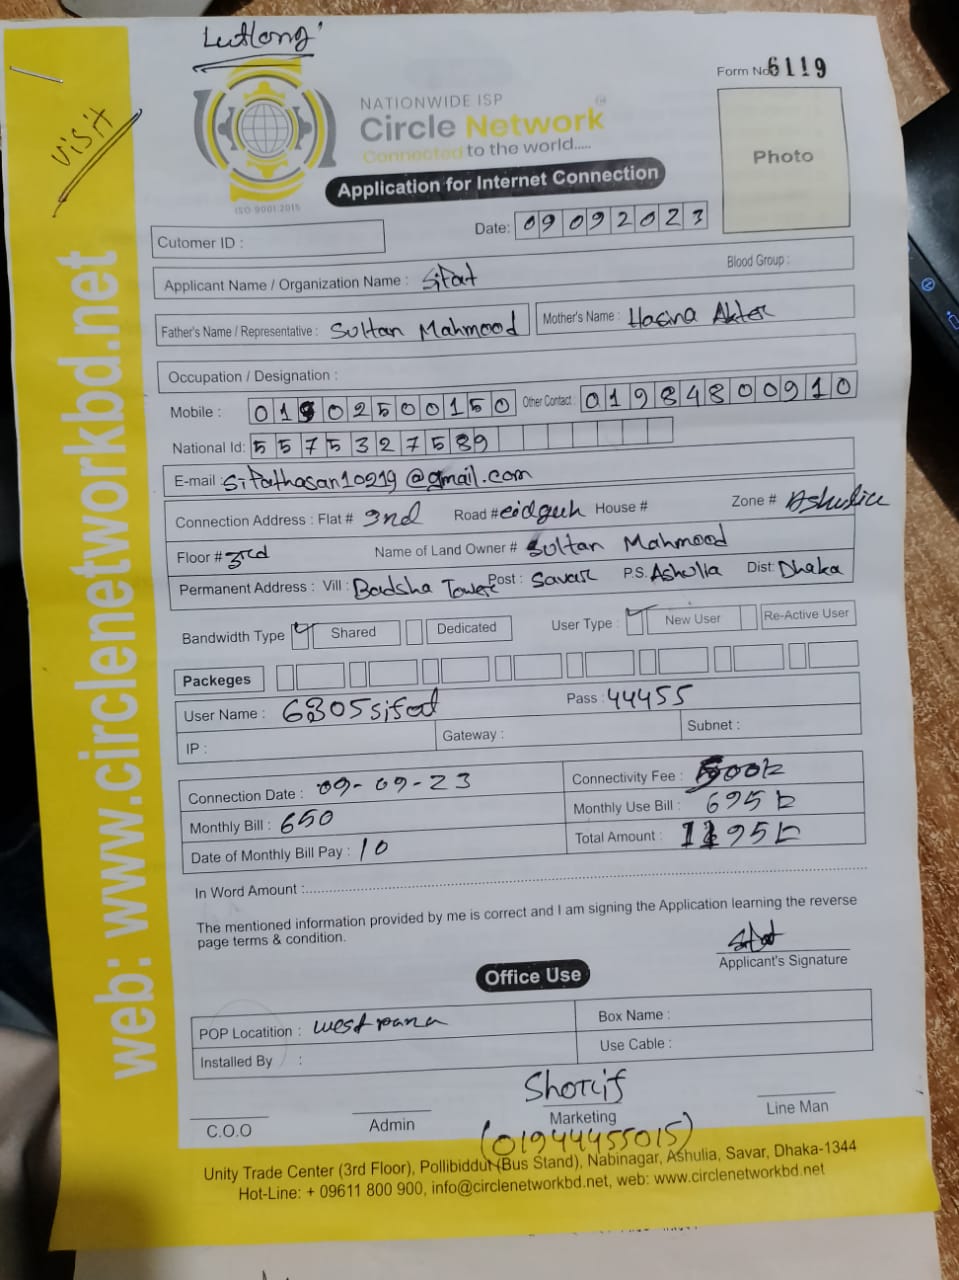 Lutlong'
Form No 6119
VISIT
NATIONWIDE ISP
Circle Network
Connected to the world.....
Photo
Application for Internet Connection
ISO 9001:2015
Date: 09092023
Cutomer ID :
Applicant Name / Organization Name : Sifat Blood Group :
Father's Name / Representative : Sultan Mahmood Mother's Name : Hasina Akter
Occupation / Designation :
Mobile : 01902500150 Other Contact : 01984800910
National Id: 5575327589
E-mail : sifathasan10219@gmail.com
Connection Address : Flat # 3nd Road # eidguh House # Zone # Ashulia
Floor # 3rd Name of Land Owner # Sultan Mahmood
Permanent Address : Vill : Badsha Tower Post : Savar P.S. Ashulia Dist: Dhaka
Bandwidth Type Shared Dedicated User Type : New User Re-Active User
Packeges
User Name : 6305sifat Pass : 44455
IP : Gateway : Subnet :
Connection Date : 09-09-23 Connectivity Fee : 500/=
Monthly Bill : 650 Monthly Use Bill : 695/=
Date of Monthly Bill Pay : 10 Total Amount : 1195/=
In Word Amount :
The mentioned information provided by me is correct and I am signing the Application learning the reverse
page terms & condition.
Sifat
Applicant's Signature
Office Use
POP Locatition : west para Box Name :
Installed By : Use Cable :
Shorif
C.O.O Admin Marketing Line Man
(01944455015)
Unity Trade Center (3rd Floor), Pollibiddut (Bus Stand), Nabinagar, Ashulia, Savar, Dhaka-1344
Hot-Line: + 09611 800 900, info@circlenetworkbd.net, web: www.circlenetworkbd.net
web: www.circlenetworkbd.net